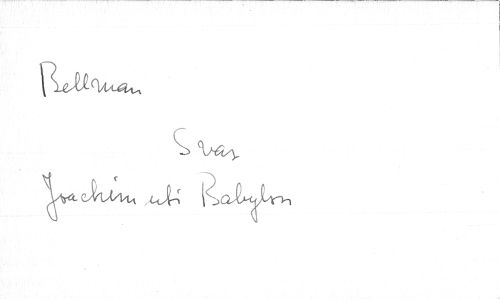 Bellman
Svar
Joachim uti Babylon